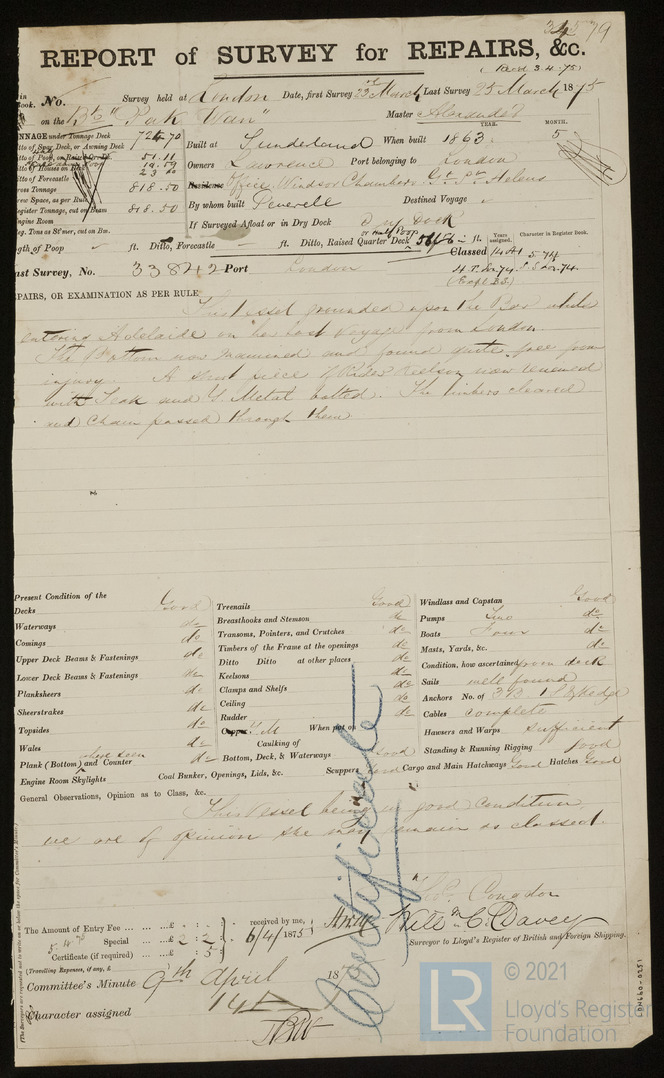 34579
REPORT of SURVEY for REPAIRS, &c.
(Recd 3.4.75)
No. Survey held at London Date, first Survey 23rd March Last Survey 25 March 1875
on the Bk "Pak Wan" Master Alexander
TONNAGE under Tonnage Deck 724.70
Ditto of Spar Deck, or Awning Deck
Ditto of Poop, or Raised Qr. Dk. 51.11
Ditto of Houses on Deck 19.59
Ditto of Forecastle 23.10
Gross Tonnage 818.50
Crew Space, as per Rule
Register Tonnage, cut on Beam 818.50
Engine Room
Reg. Tons as St'mer, cut on Bm.
Built at Sunderland When built YEAR. 1863 MONTH. 5
Owners Lawrence Port belonging to London
Residence Office, Windsor Chambers Gt. St. Helens
By whom built Peverell Destined Voyage
If Surveyed Afloat or in Dry Dock Dry Dock
Length of Poop ft. Ditto, Forecastle ft. Ditto, Raised Quarter Deck or Half Poop 56 ft.
Years assigned. Character in Register Book.
Last Survey, No. 33842 Port London
Classed 14 A1 5.74
REPAIRS, OR EXAMINATION AS PER RULE
This vessel grounded upon the Bar while
entering Adelaide on her last voyage from London.
The Bottom now examined and found quite free from
injury. A short piece of Rider Keelson now renewed
with Teak and Y. Metal bolted. The limbers cleared
and Chain passed through them
Present Condition of the
Decks Good
Waterways do
Comings do
Upper Deck Beams & Fastenings do
Lower Deck Beams & Fastenings do
Planksheers do
Sheerstrakes do
Topsides do
Wales do
Plank (Bottom) and Counter where seen do
Engine Room Skylights
Treenails Good
Breasthooks and Stemson do
Transoms, Pointers, and Crutches do
Timbers of the Frame at the openings do
Ditto Ditto at other places do
Keelsons do
Clamps and Shelfs do
Ceiling No
Rudder do
Copper Y.M. When put on
Caulking of
Bottom, Deck, & Waterways Good
Coal Bunker, Openings, Lids, &c. Scuppers Good Cargo and Main Hatchways Good Hatches Good
Windlass and Capstan Good
Pumps Two do
Boats Four do
Masts, Yards, &c. do
Condition, how ascertained from deck
Sails well found
Anchors No. of 3 B. 1 S. & Kedge
Cables complete
Hawsers and Warps sufficient
Standing & Running Rigging good
General Observations, Opinion as to Class, &c.
This Vessel being in good condition,
we are of opinion she may remain as classed.
Certificate
Congdon
Willm C. Davey
Surveyor to Lloyd's Register of British and Foreign Shipping.
The Amount of Entry Fee £ : :
Special £ 2 : 2 :
Certificate (if required) £ : 5 :
5.4.75
received by me,
6/4/1875
(Travelling Expenses, if any, £
Committee's Minute 9th April 18
Character assigned 14 A
(The Surveyors are requested not to write on or below the space for Committee's Minute.)
LRF660-0251
LR
© 2021
Lloyd's Register
Foundation